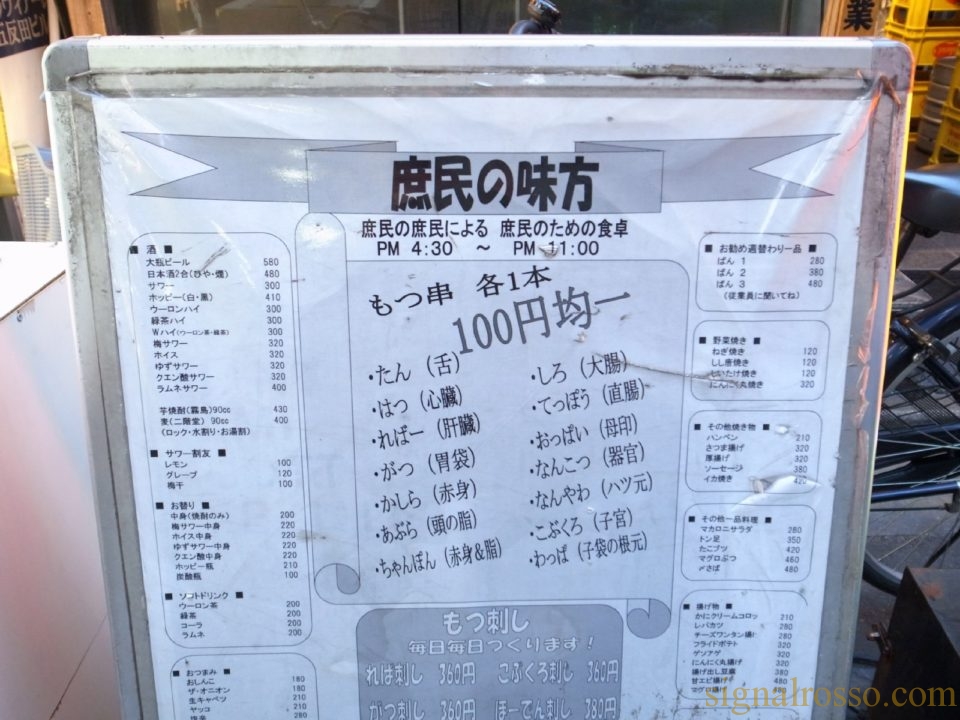 五反田ビ
業
庶民の味方
庶民の庶民による 庶民のための食卓
PM 4:30 ～ PM 11:00
■ 酒 ■
大瓶ビール 580
日本酒2合(ひや・燗) 480
サワー 300
ホッピー(白・黒) 410
ウーロンハイ 300
緑茶ハイ 300
Wハイ(ウーロン茶・緑茶) 300
梅サワー 320
ホイス 320
ゆずサワー 320
クエン酸サワー 320
ラムネサワー 400
芋焼酎(霧島)90cc 430
麦(二階堂) 90cc 400
(ロック・水割り・お湯割)
■ サワー割友 ■
レモン 100
グレープ 120
梅干 100
■ お替り ■
中身(焼酎のみ) 200
梅サワー中身 220
ホイス中身 220
ゆずサワー中身 220
クエン酸中身 220
ホッピー瓶 210
炭酸瓶 100
■ ソフトドリンク ■
ウーロン茶 200
緑茶 200
コーラ 200
ラムネ 200
■ おつまみ ■
おしんこ 180
ザ・オニオン 180
生キャベツ 210
ヤッコ 210
もつ串 各1本
100円均一
・たん (舌)
・はつ (心臓)
・ればー (肝臓)
・がつ (胃袋)
・かしら (赤身)
・あぶら (頭の脂)
・ちゃんぽん (赤身&脂)
・しろ (大腸)
・てっぽう (直腸)
・おっぱい (母印)
・なんこつ (器官)
・なんやわ (ハツ元)
・こぶくろ (子宮)
・わっぱ (子袋の根元)
もつ刺し
毎日毎日つくります！
れば刺し 360円 こぶくろ刺し 360円
がつ刺し 360円 ほーでん刺し 380円
■ お勧め週替わり一品 ■
ばん 1 280
ばん 2 380
ばん 3 480
(従業員に聞いてね)
■ 野菜焼き ■
ねぎ焼き 120
しし唐焼き 120
しいたけ焼き 120
にんにく丸焼き 320
■ その他焼き物 ■
ハンペン 210
さつま揚げ 320
厚揚げ 320
ソーセージ 380
イカ焼き 420
■ その他一品料理 ■
マカロニサラダ 280
トン足 350
たこブツ 420
マグロぶつ 460
〆さば 480
■ 揚げ物 ■
かにクリームコロッ 210
レバカツ 280
チーズワンタン揚げ 280
フライドポテト 320
ゲソアゲ 320
にんにく丸揚げ 320
揚げ出し豆腐 380
甘エビ揚げ 480
マグロ揚げ 480
signalrosso.com